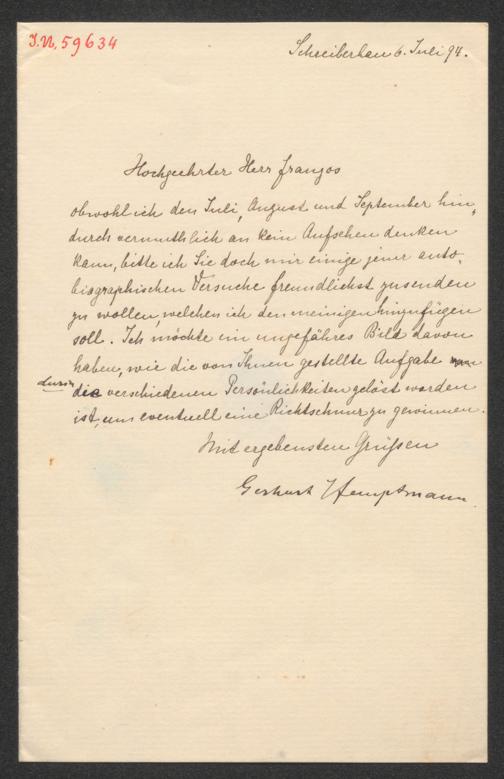 I.N. 59634
Schreiberhau 6. Juli 94.
Hochgeehrter Herr Franzos
obwohl ich den Juli, August und September hin-
durch vermuthlich an kein Aufsehen denken
kann, bitte ich Sie doch mir einige jener auto-
biographischen Versuche freundlichst zusenden
zu wollen, welchen ich den meinigen hinzufügen
soll. Ich möchte ein ungefähres Bild davon
haben, wie die von Ihnen gestellte Aufgabe
durch die verschiedenen Persönlichkeiten gelöst worden
ist, um eventuell eine Richtschnur zu gewinnen.
Mit ergebensten Grüßen
Gerhart Hauptmann